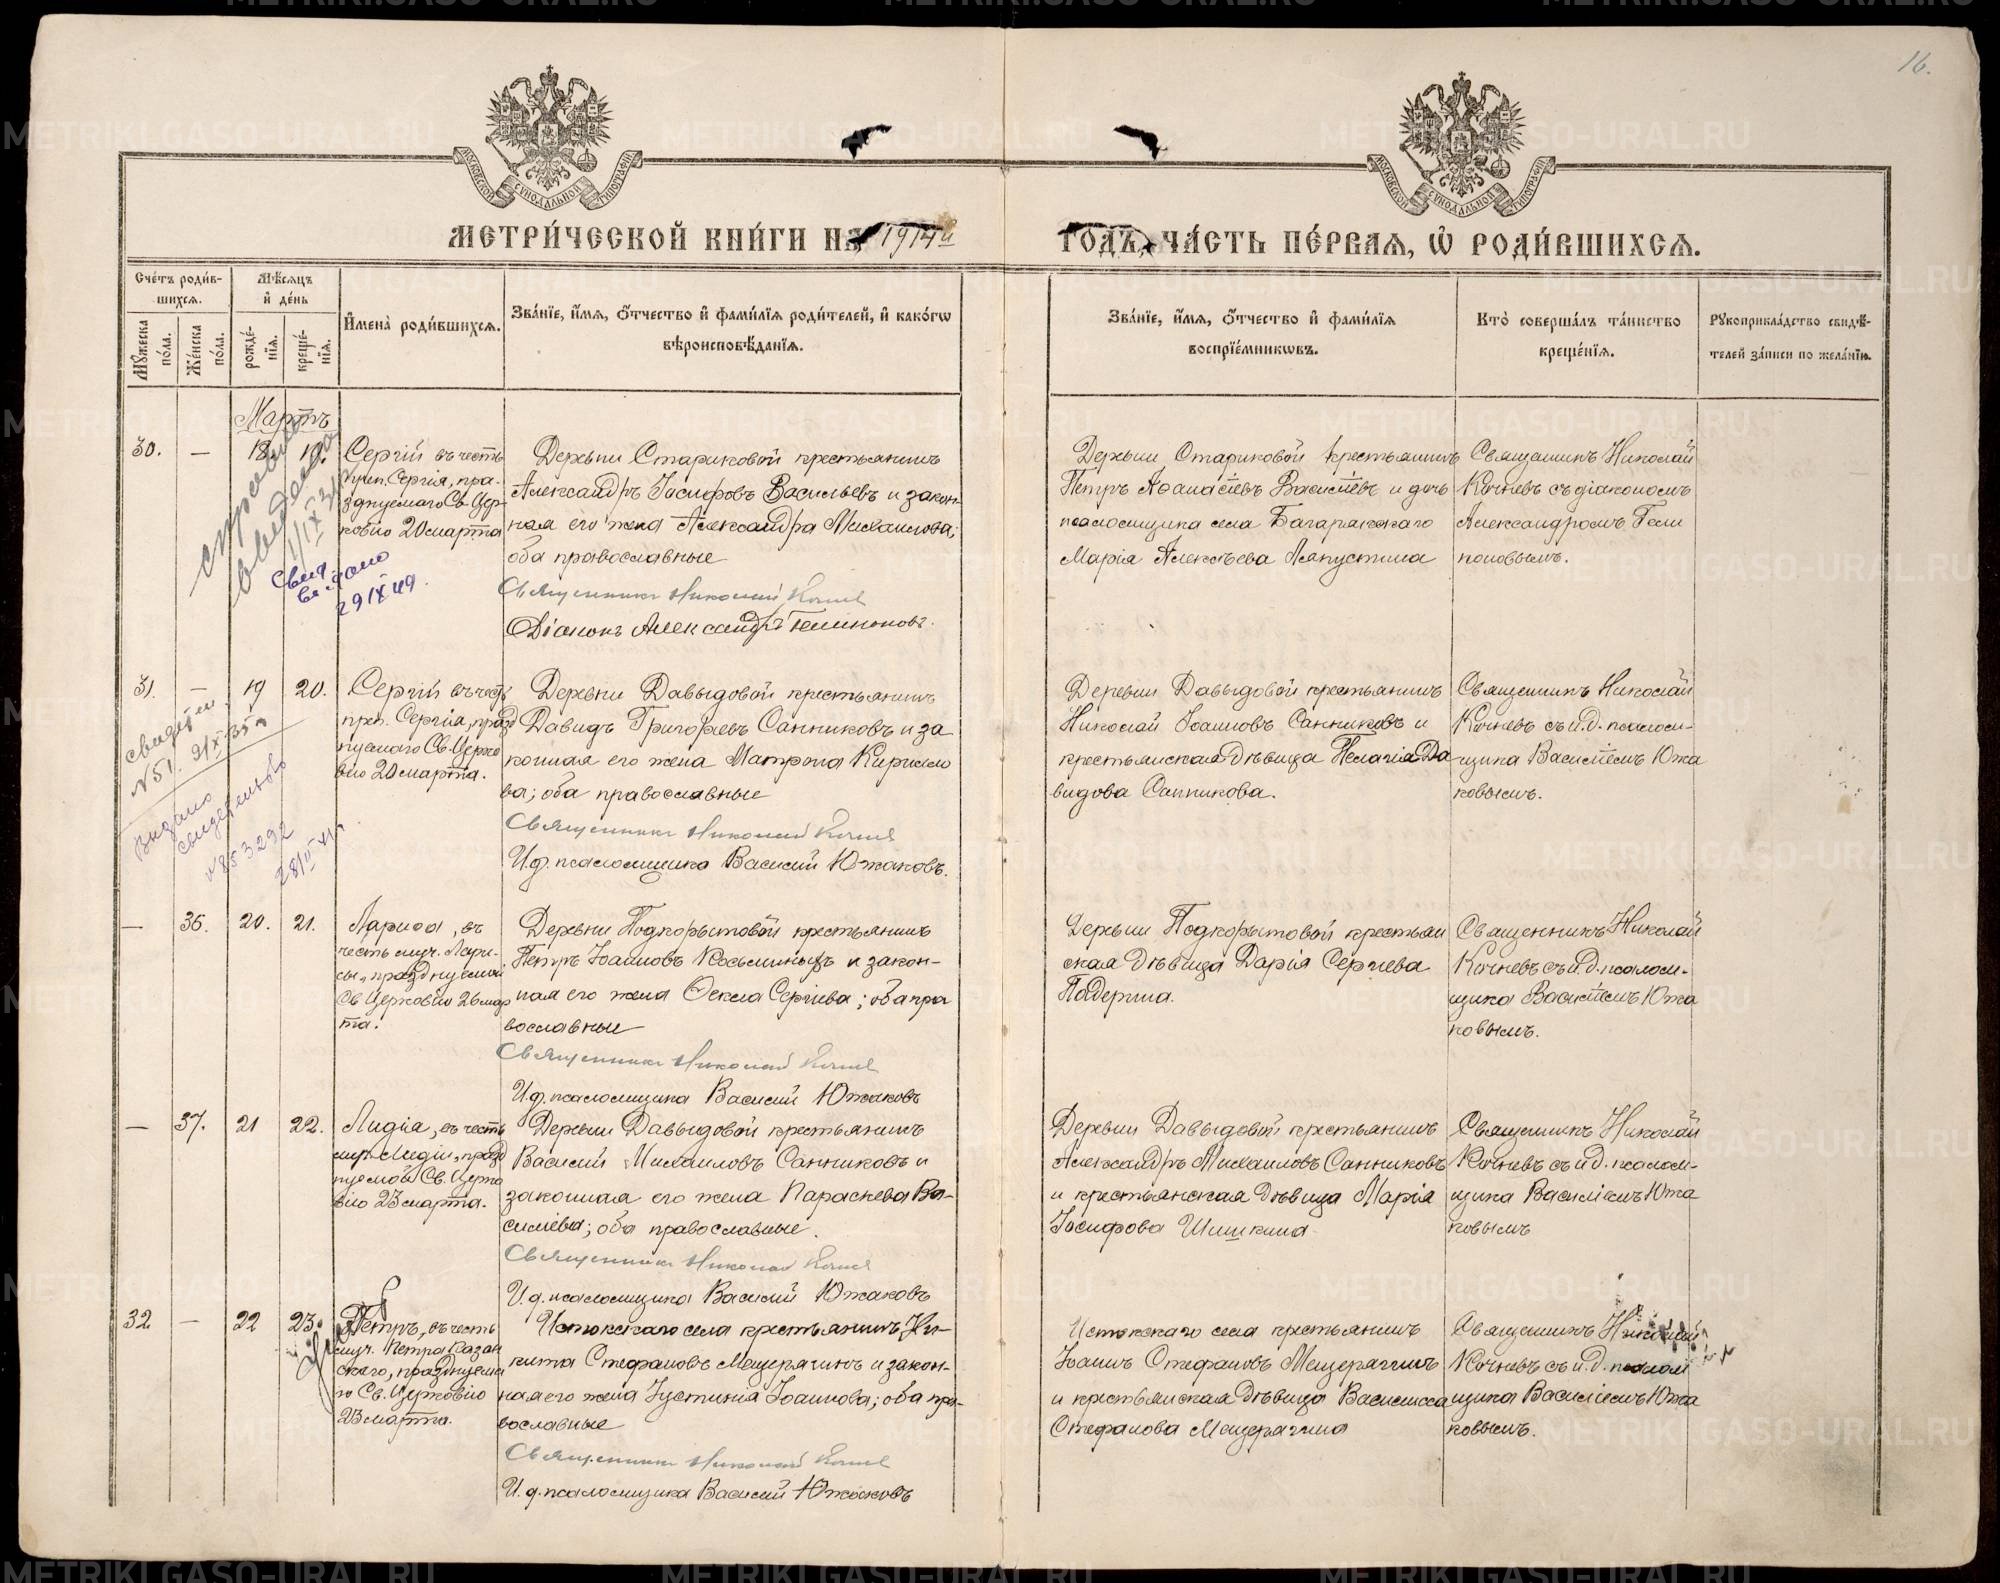 16.
МОСКОВСКОЙ СѴНОДАЛЬНОЙ ТИПОГРАФІИ
МОСКОВСКОЙ СѴНОДАЛЬНОЙ ТИПОГРАФІИ
МЕТРИ́ЧЕСКОЙ КНИ́ГИ НА 1914й
ГОДЪ, ЧА́СТЬ ПЕ́РВАЯ, Ѡ҆ РОДИ́ВШИХСЯ.
Сче́тъ роди́в-
шихся.
Мѣ́сяцъ
и҆ де́нь
Му́жеска
по́ла.
Же́нска
по́ла.
рожде́-
нїя.
креще́-
нїя.
И҆мена̀ роди́вшихся.
Зва́нїе, и҆́мя, ѻ҆́тчество и҆ фами́лїя роди́телей, и҆ како́гѡ
вѣроисповѣ́данїя.
Зва́нїе, и҆́мя, ѻ҆́тчество и҆ фами́лїя
воспрїе́мникѡвъ.
Кто̀ соверша́лъ та́инство
креще́нїя.
Рукоприкла́дство свидѣ́-
телей за́писи по жела́нїю.
Мартъ
30.
—
18
19.
Сергій въ честь
преп. Сергія, пра-
зднуемаго Св. Цер-
ковію 20 марта
Деревни Стариковой крестьянинъ
Александръ Іосифовъ Васильевъ и закон-
ная его жена Александра Михаилова;
оба православные
Священникъ Николай Кочнев
Діаконъ Александръ Геликоновъ.
Деревни Стариковой крестьянинъ
Петръ Аѳанасіевъ Васильевъ и дочь
псаломщика села Багарякскаго
Марія Алексѣева Ляпустина
Священникъ Николай
Кочневъ съ діакономъ
Александромъ Гели
коновымъ.
Свид.
выдано
29 IX 49.
31.
—
19
20.
Сергій въ честь
преп. Сергія, празд
нуемаго Св. Церко
вію 20 марта.
Деревни Давыдовой крестьянинъ
Давидъ Григорьевъ Санниковъ и за
конная его жена Матрона Кирилло
ва; оба православные
Священникъ Николай Кочнев
И.д. псаломщика Василий Южаковъ.
Деревни Давыдовой крестьянинъ
Николай Іоанновъ Санниковъ и
крестьянская дѣвица Пелагія Да
видова Санникова.
Священникъ Николай
Кочневъ съ и.д. псалом-
щика Василіемъ Южа
ковымъ.
Выдано
свидетельство
—
36.
20.
21.
Лариса, въ
честь муч. Лари-
сы, празднуемой
Св. Церковію 26 мар
та.
Деревни Подкорытовой крестьянинъ
Петръ Іоанновъ Косьминыхъ и закон-
ная его жена Ѳекла Сергіева; оба пра
вославные
Священникъ Николай Кочнев
И.д. псаломщика Василий Южаковъ
Деревни Подкорытовой крестьян
ская дѣвица Дарія Сергіева
Падерина.
Священникъ Николай
Кочневъ съ и.д. псалом-
щика Василіемъ Южа
ковымъ.
—
37.
21
22.
Лидія, въ честь
муч. Лидіи, празд
нуемой Св. Церко
вію 23 марта.
Деревни Давыдовой крестьянинъ
Василий Михаиловъ Санниковъ и
законная его жена Параскева Ва-
силіева; оба православные.
Священникъ Николай Кочнев
И.д. псаломщика Василий Южаковъ
Деревни Давыдовой крестьянинъ
Александръ Михаиловъ Санниковъ
и крестьянская дѣвица Марія
Іосифова Шишкина
Священникъ Николай
Кочневъ съ и.д. псалом-
щика Василіемъ Южа
ковымъ
32
—
22
23.
Петръ, въ честь
муч. Петра Казан
скаго, празднуема
го Св. Церковію
23 марта.
Истокскаго села крестьянинъ Ни-
кита Стефановъ Мещерягинъ и закон-
ная его жена Іустинія Іоаннова; оба пра-
вославные
Священникъ Николай Кочнев
И.д. псаломщика Василий Южаковъ
Истокскаго села крестьянинъ
Іоаннъ Стефановъ Мещерягинъ
и крестьянская дѣвица Василисса
Стефанова Мещерягина
Священникъ Николай
Кочневъ съ и.д. псалом
щика Василіемъ Южа
ковымъ.
METRIKI.GASO-URAL.RU